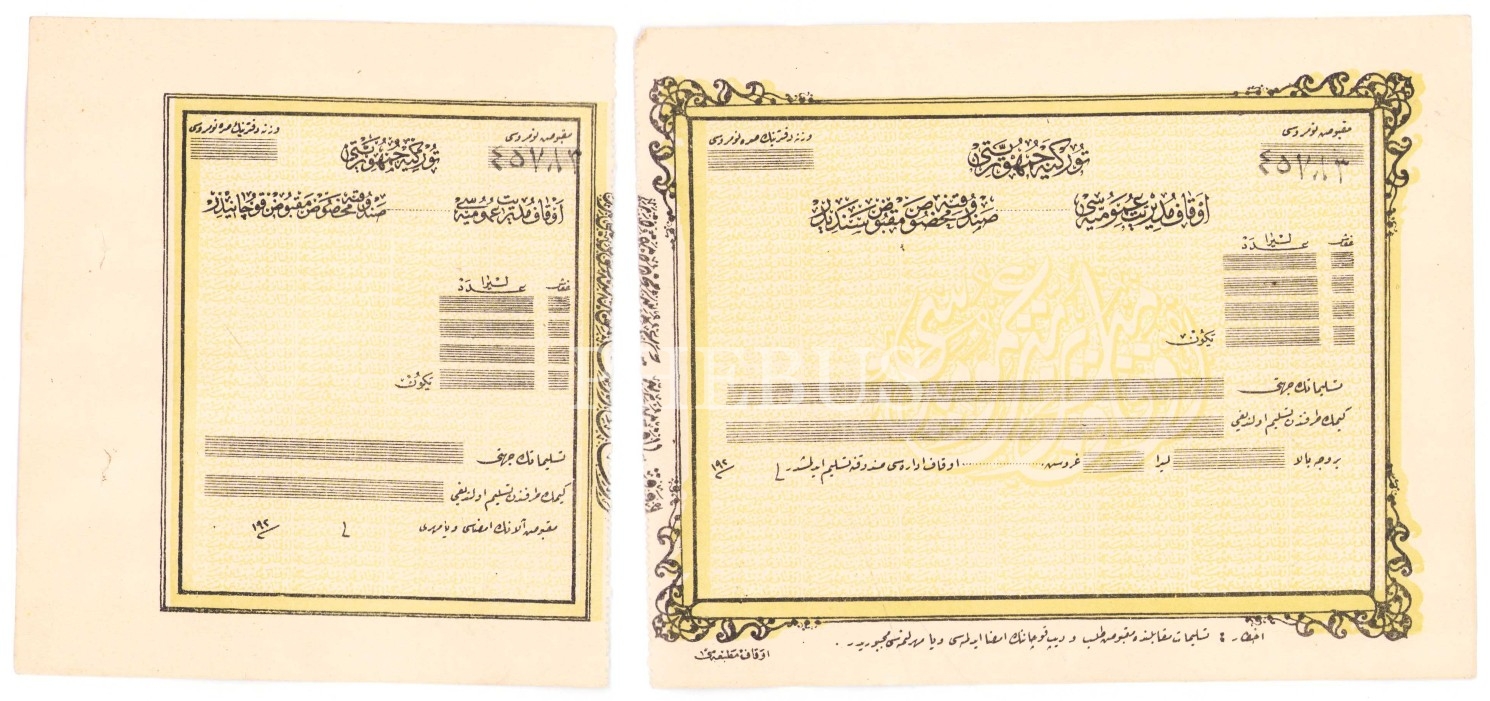 مقبوض نومروسی
وزنه دفترینك صره نومروسی
٤٥٧٨٣
توركیه جمهوریتی
اوقاف مدیریت عمومیه سی
صندوقنه مخصوص مقبوض سندیدر
غروش
لیرا
عدد
یكون
تسلیماتك جهتی
كیمك طرفندن تسلیم اولندیغی
بر وجه بالا
لیرا
غروش
اوقاف اداره سی صندوقنه تسلیم ایدلمشدر
١٩٢
اخطار : تسلیمات مقابلنده مقبوض طلب و دیپ قوچانك امضا ایدلمسی و یا مهرلنمسی مجبوریدر .
اوقاف مطبعه سی
مقبوض نومروسی
وزنه دفترینك صره نومروسی
٤٥٧٨٣
توركیه جمهوریتی
اوقاف مدیریت عمومیه سی
صندوقنه مخصوص مقبوض قوچانیدر
غروش
لیرا
عدد
یكون
تسلیماتك جهتی
كیمك طرفندن تسلیم اولندیغی
مقبوض آلانك امضاسی و یا مهری
١٩٢
PHEBUS